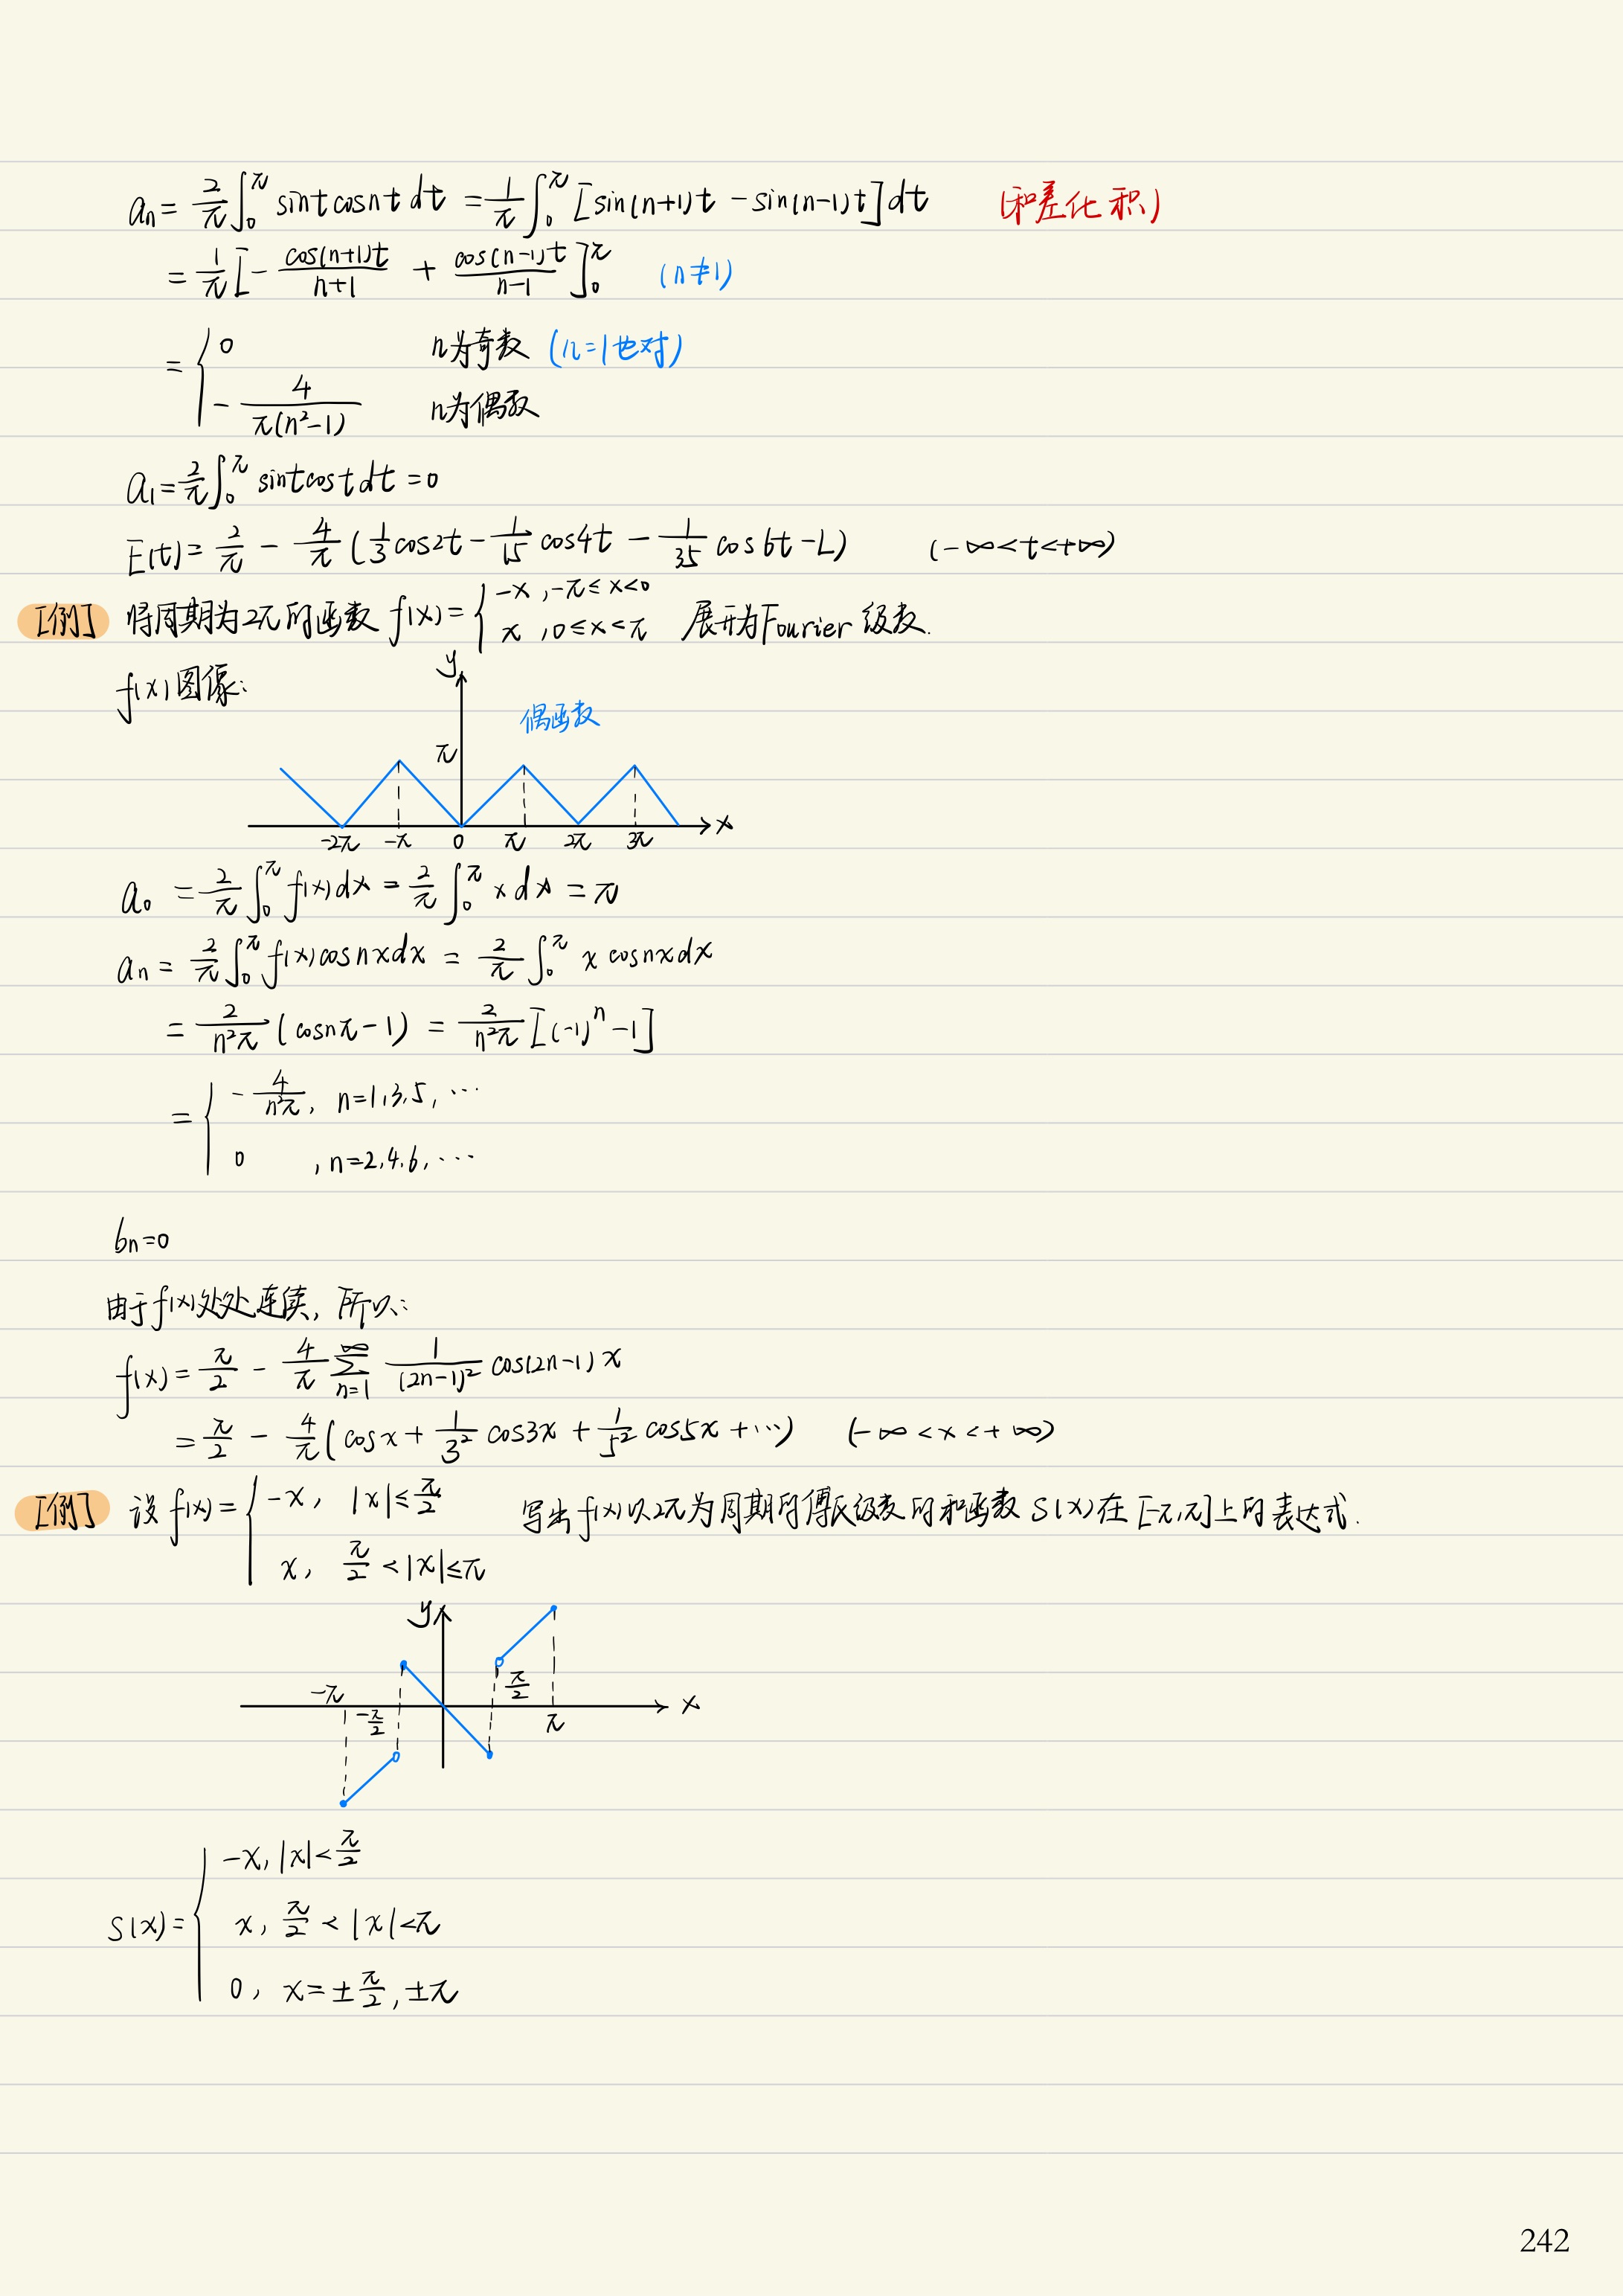 aₙ = 2/π ∫₀^π sint cosnt dt = 1/π ∫₀^π [sin(n+1)t - sin(n-1)t] dt (和差化积)
= 1/π [- cos(n+1)t/(n+1) + cos(n-1)t/(n-1)]₀^π (n≠1)
= { 0 n为奇数 (n=1也对)
- 4/(π(n²-1)) n为偶数
a₁ = 2/π ∫₀^π sint cost dt = 0
E(t) = 2/π - 4/π (1/3 cos2t - 1/15 cos4t - 1/35 cos6t - L) (-∞<t<+∞)
[例] 将周期为2π的函数 f(x) = { -x, -π≤x<0
x, 0≤x<π 展开为Fourier级数.
f(x)图像:
y
偶函数
π
-2π -π 0 π 2π 3π x
a₀ = 2/π ∫₀^π f(x)dx = 2/π ∫₀^π x dx = π
aₙ = 2/π ∫₀^π f(x)cosnxdx = 2/π ∫₀^π x cosnxdx
= 2/(n²π) (cosnπ-1) = 2/(n²π) [(-1)ⁿ-1]
= { - 4/(n²π), n=1,3,5,⋯
0, n=2,4,6,⋯
bₙ=0
由于f(x)处处连续, 所以:
f(x) = π/2 - 4/π ∑_{n=1}^{∞} 1/(2n-1)² cos(2n-1)x
= π/2 - 4/π (cosx + 1/3² cos3x + 1/5² cos5x + ⋯) (-∞<x<+∞)
[例] 设 f(x) = { -x, |x|≤π/2 写出f(x)以2π为周期的傅氏级数的和函数S(x)在[-π,π]上的表达式.
x, π/2<|x|≤π
y
-π -π/2 π/2 π x
S(x) = { -x, |x|<π/2
x, π/2<|x|<π
0, x=±π/2, ±π
242